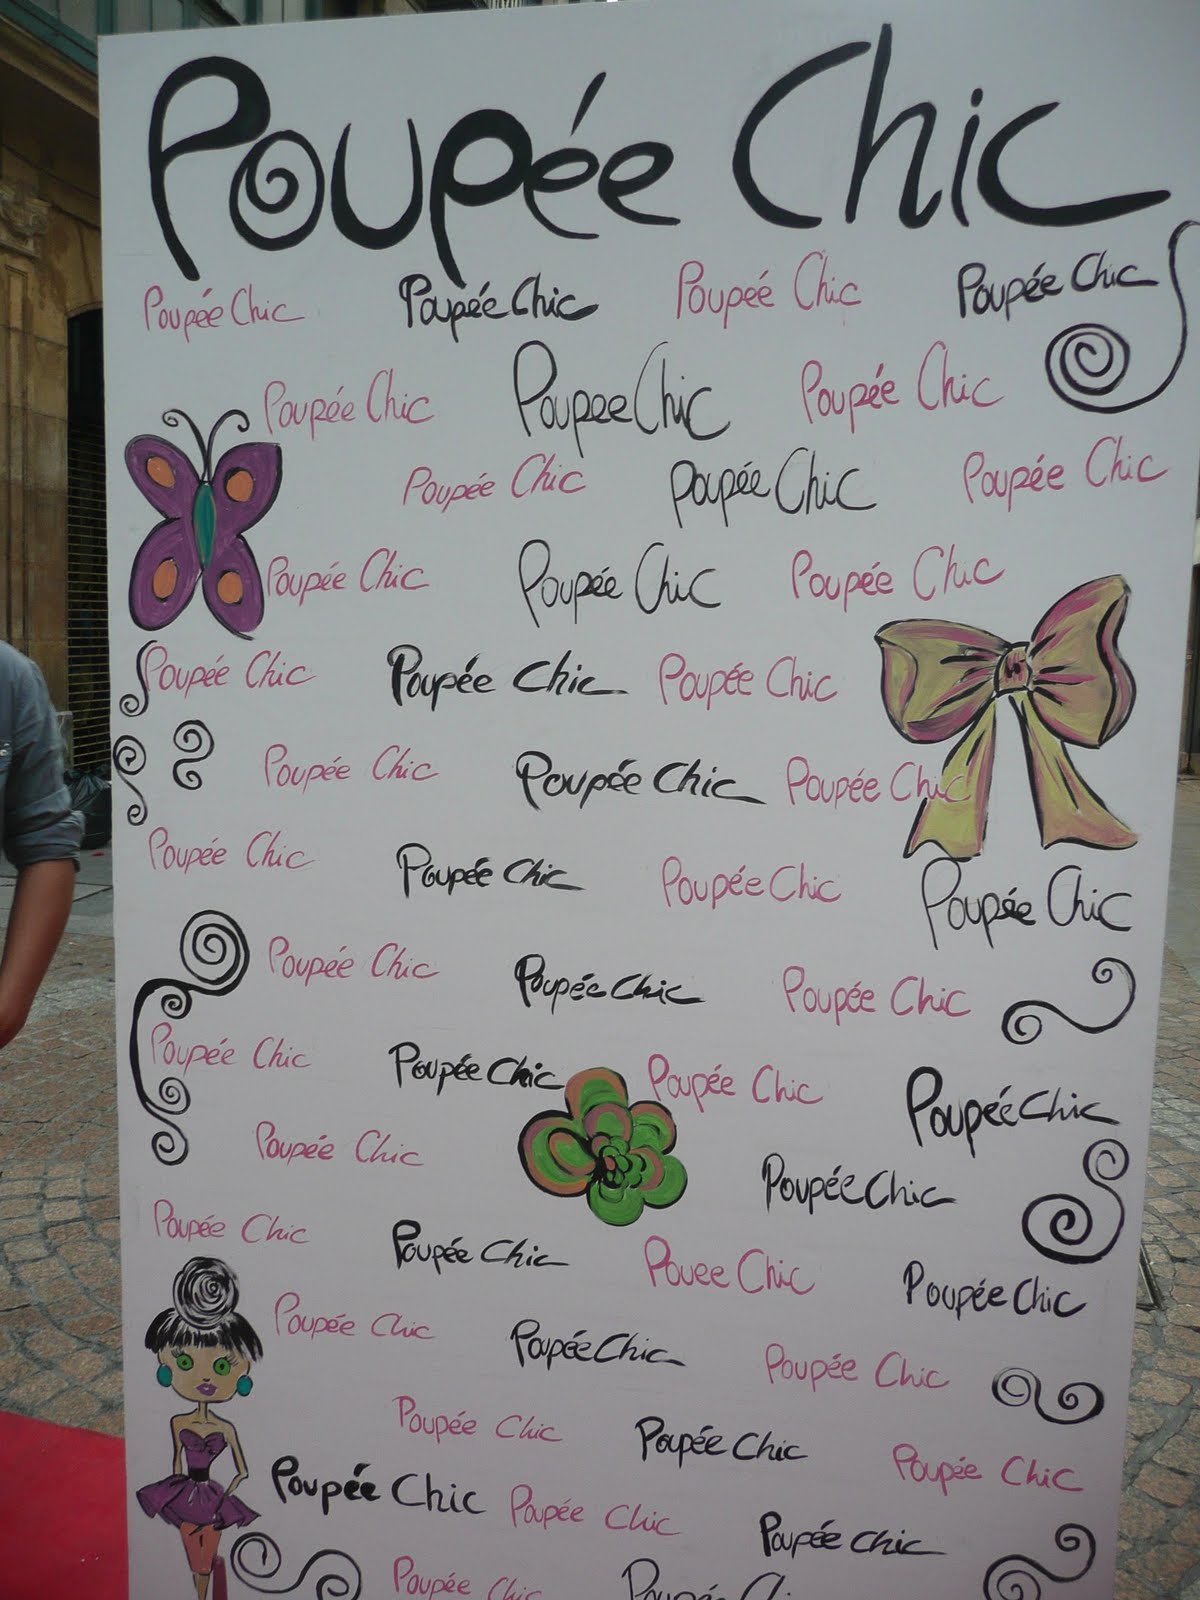 Poupée Chic
Poupée Chic Poupée Chic Poupée Chic Poupée Chic
Poupée Chic Poupee Chic Poupée Chic
Poupée Chic Poupée Chic Poupée Chic
Poupée Chic Poupée Chic Poupée Chic
Poupée Chic Poupée Chic Poupée Chic
Poupée Chic Poupée Chic Poupée Chic
Poupée Chic Poupée Chic Poupée Chic Poupée Chic
Poupée Chic Poupée Chic Poupée Chic
Poupée Chic Poupée Chic Poupée Chic Poupée Chic
Poupée Chic Poupée Chic
Poupée Chic Poupée Chic Pouee Chic Poupée Chic
Poupée Chic Poupée Chic Poupée Chic
Poupée Chic Poupée Chic Poupée Chic
Poupée Chic Poupée Chic Poupée Chic
Poupée Chic Poupée